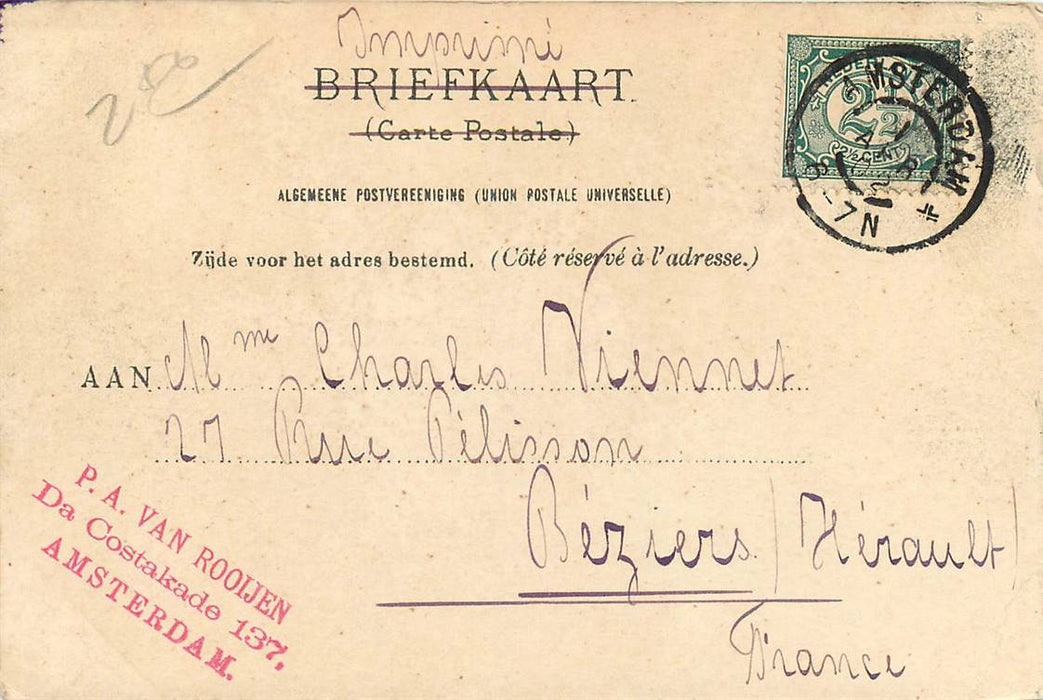 Imprimé
250
BRIEFKAART.
(Carte Postale.)
ALGEMEENE POSTVEREENIGING (UNION POSTALE UNIVERSELLE)
Zijde voor het adres bestemd. (Côté réservé à l'adresse.)
2½
2½ CENT
AMSTERDAM
6-7N
AAN Mme Charles Viennet
27 Rue Pélisson
Béziers (Hérault)
France
P. A. VAN ROOIJEN
Da Costakade 137,
AMSTERDAM.